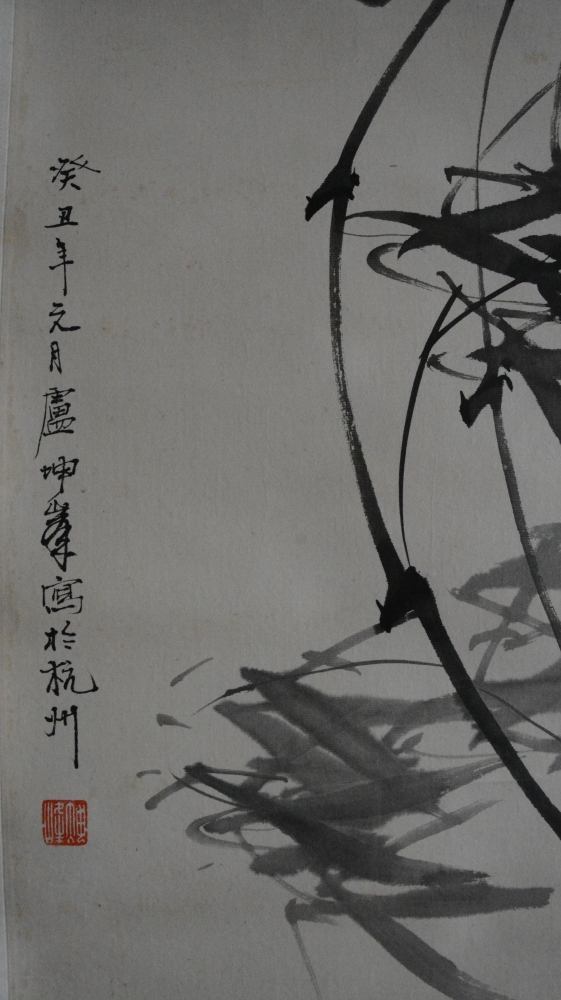 癸丑年元月盧坤峯寫於杭州
坤峯